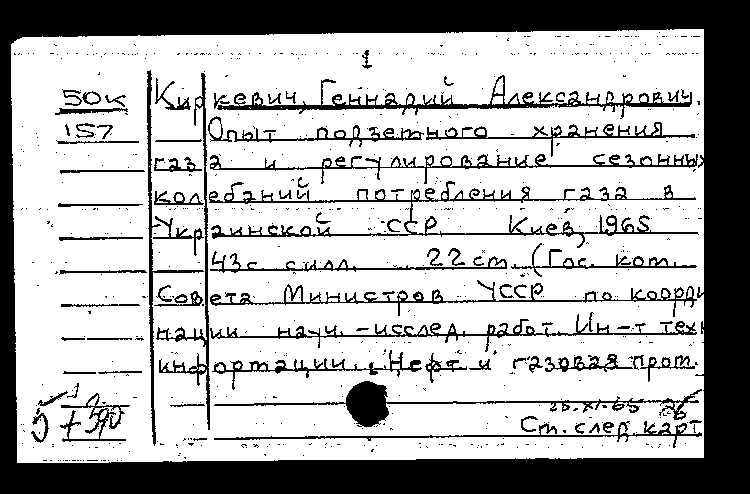 1
50к Киркевич, Геннадий Александрович.
157 Опыт подземного хранения
газа и регулирование сезонных
колебаний потребления газа в
Украинской ССР. Киев, 1965
43с. с илл. 22 см. (Гос. ком.
Совета Министров УССР по коорди
нации науч.-исслед. работ. Ин-т техн
информации. Нефт и газовая пром.
25.XI.65
5
Cm. след. карт